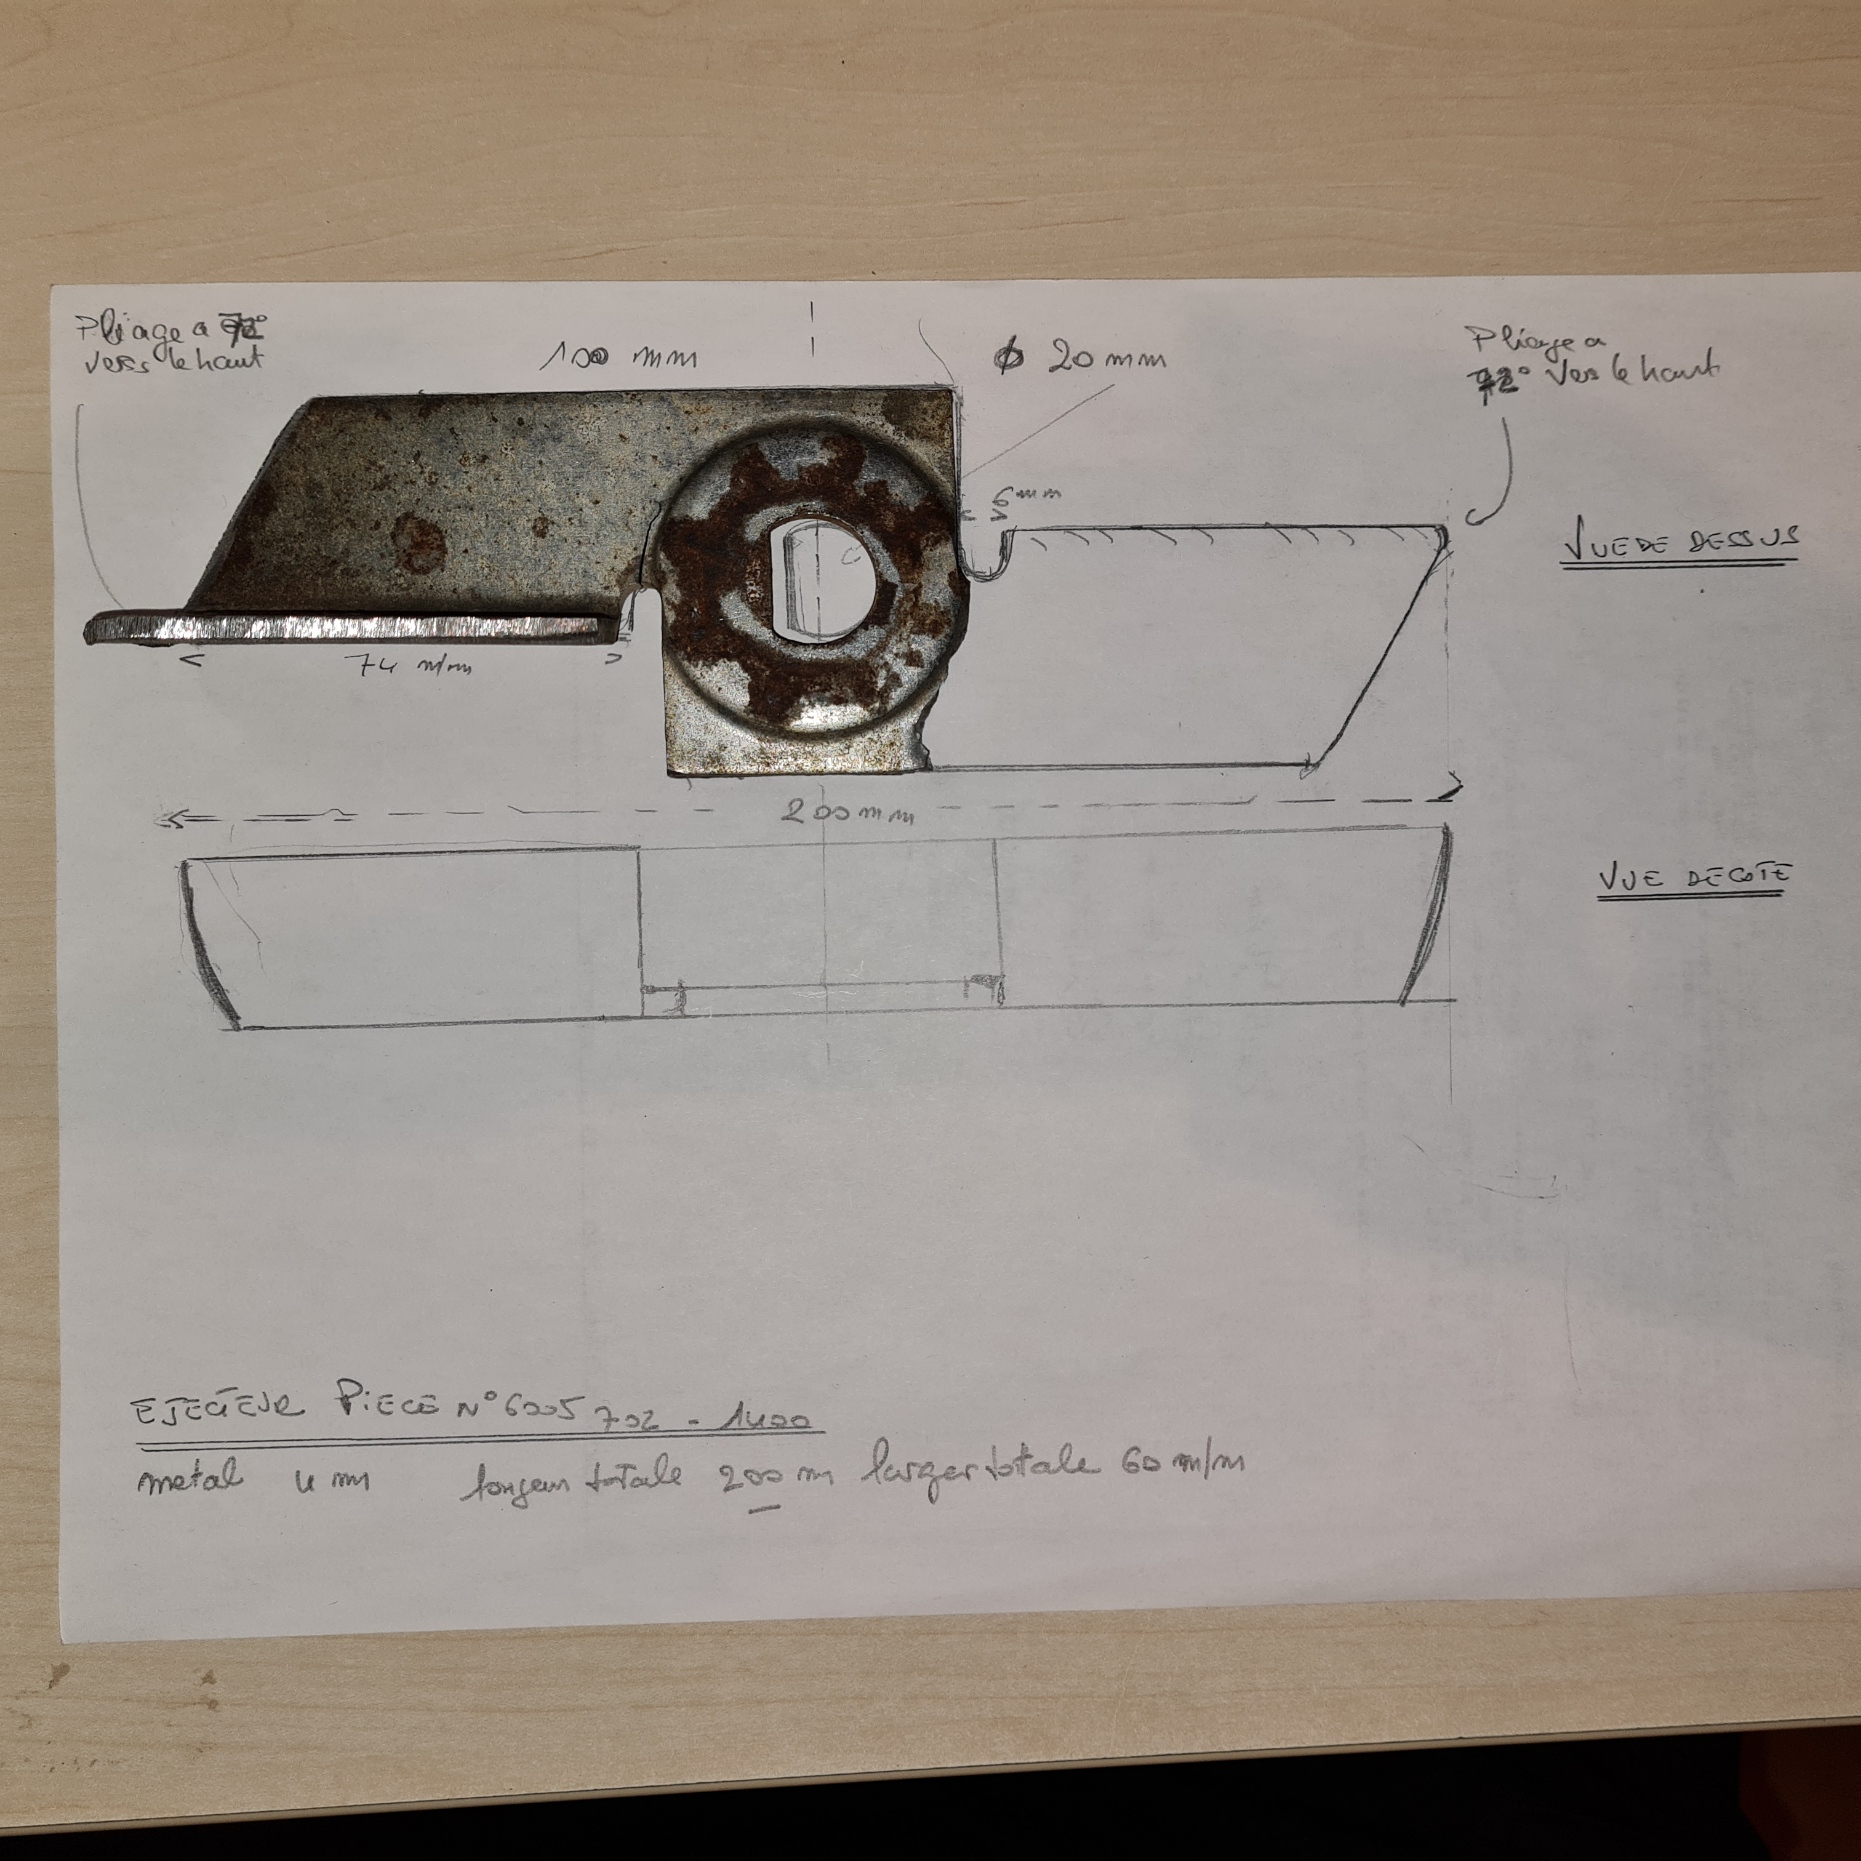 Pliage a 72°
vers le haut
100 mm
ϕ 20 mm
Pliage a
72° Vers le haut
6 mm
VUE DE DESSUS
74 m/m
200 mm
VUE DE COTE
EJECTEUR PIECE N° 6005 702 - 1400
metal 4 mm longeur totale 200 m larger totale 60 m/m